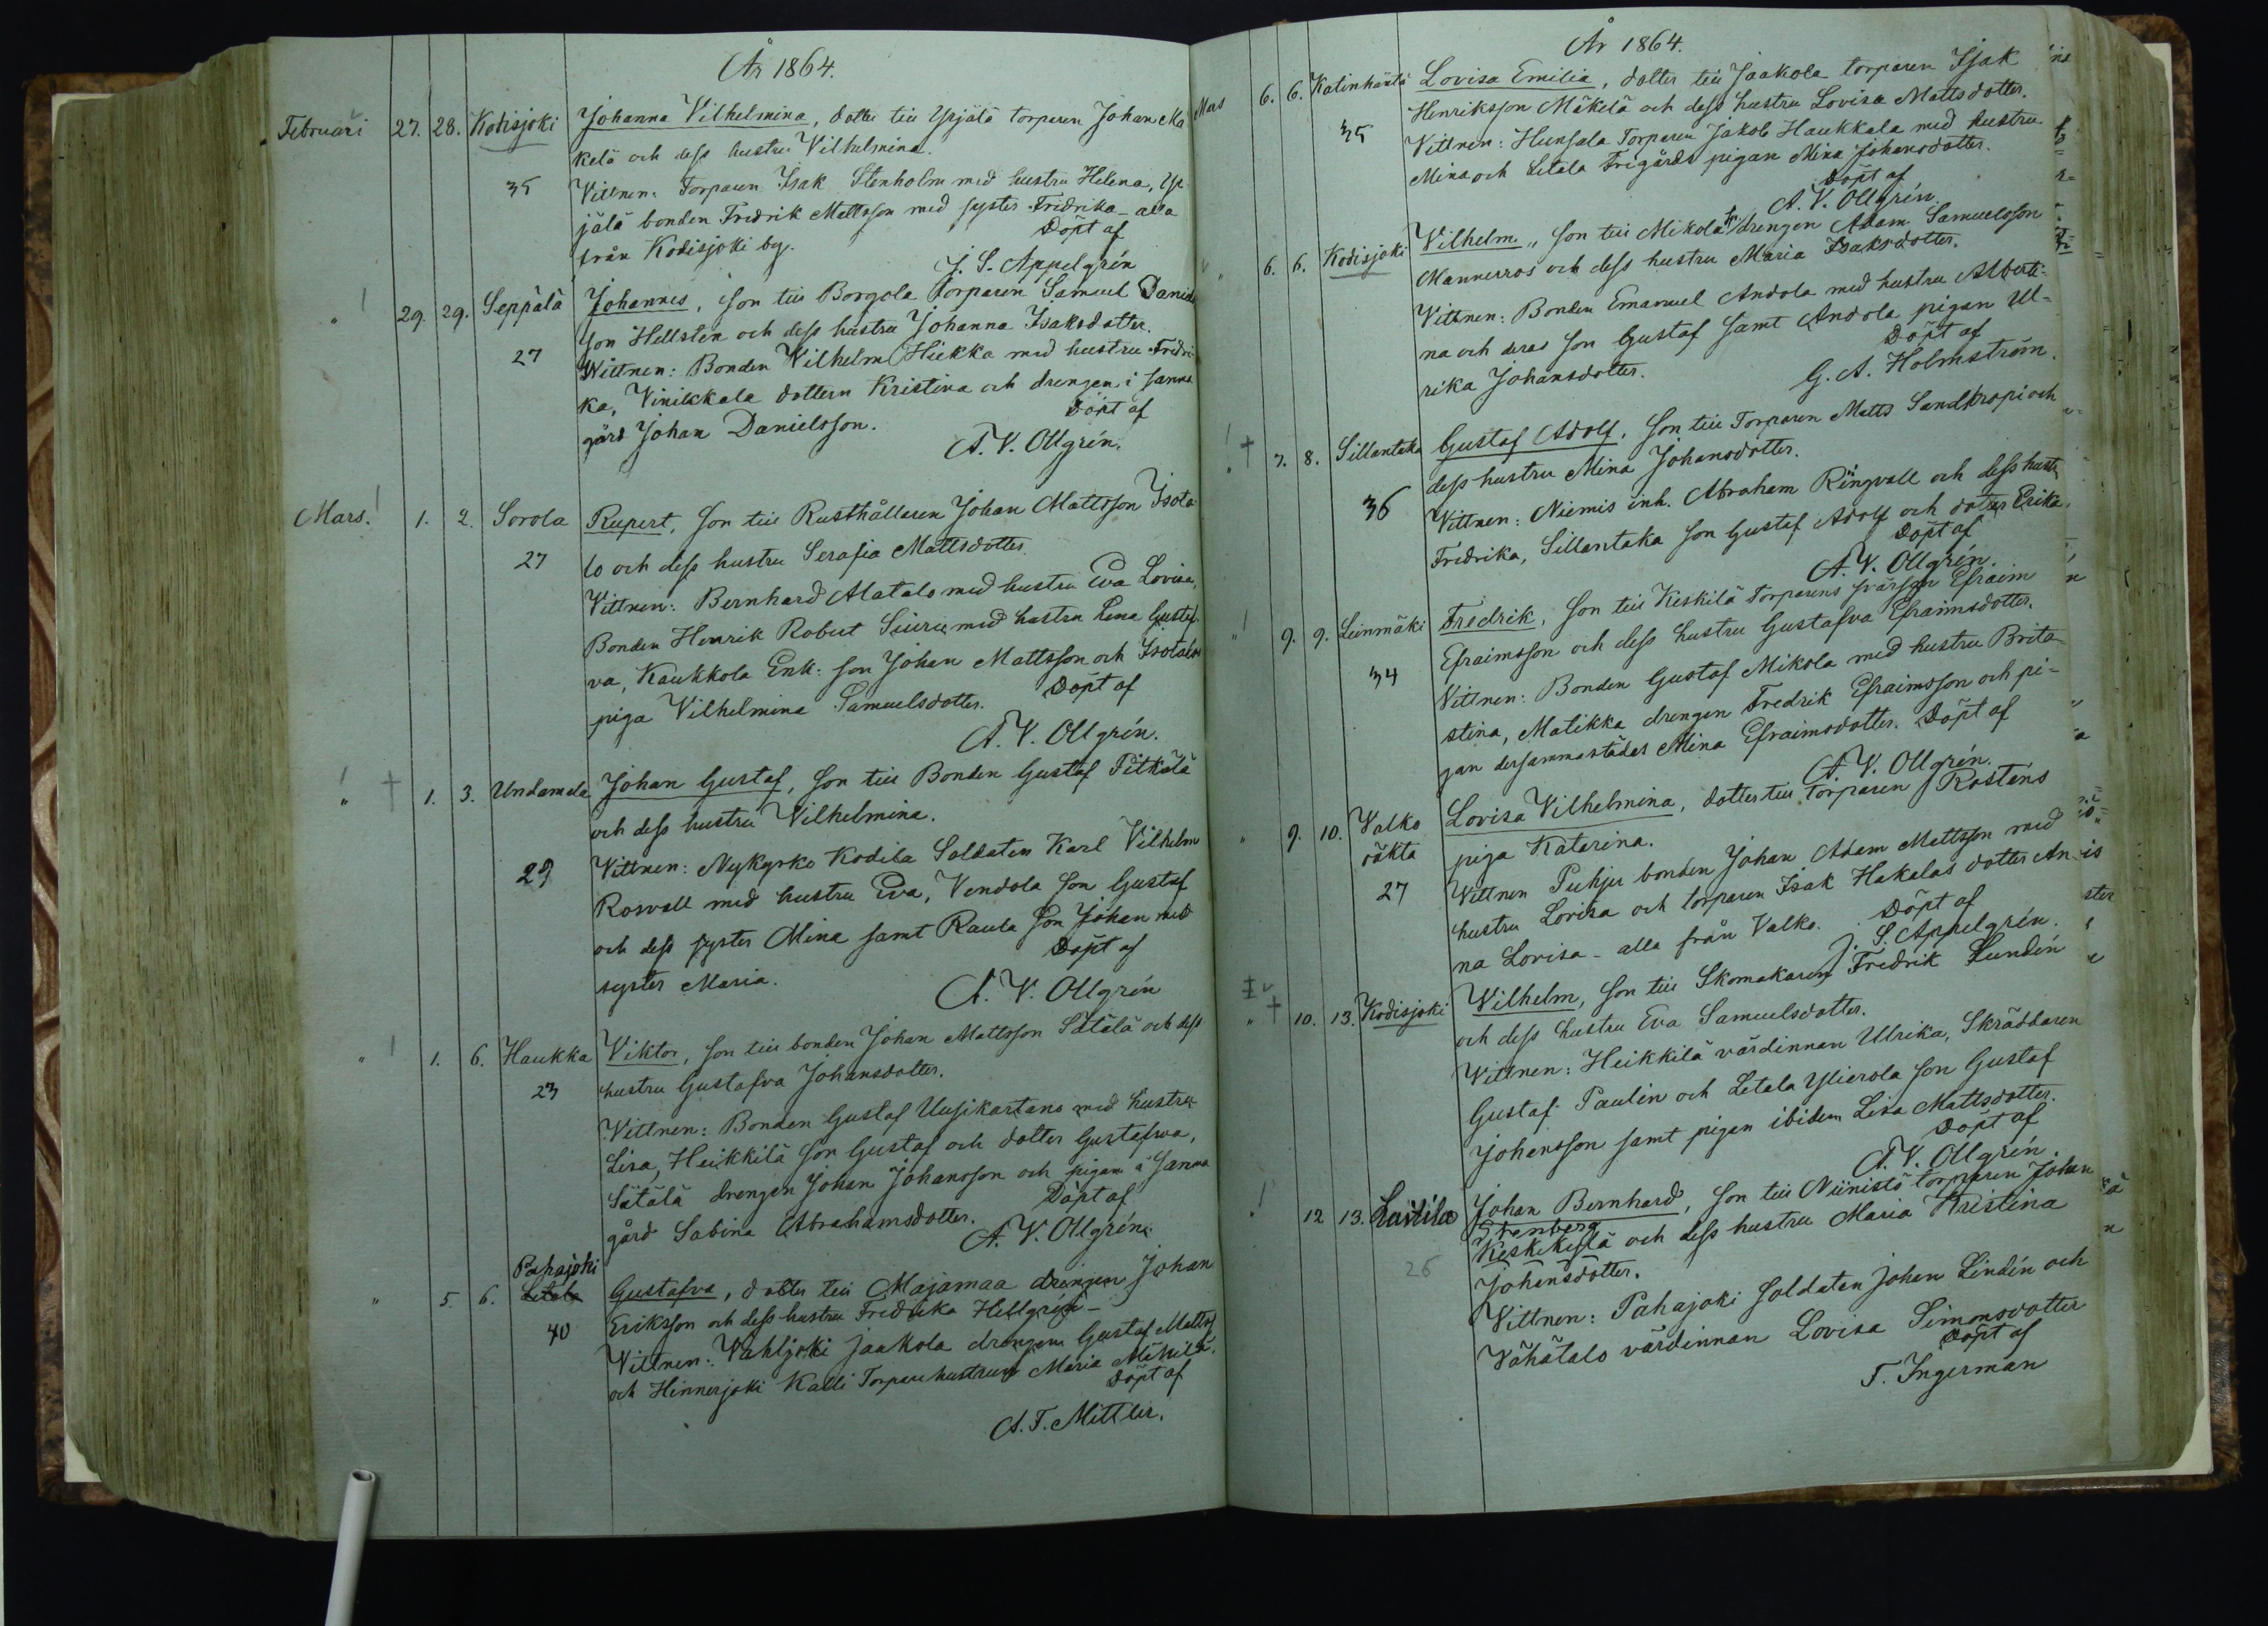 År 1864.
Februari 27. 28. Kodisjoki Johanna Vilhelmina, dotter till Yrjälä torparen Johan Mä
kelä och dess hustru Vilhelmina.
35 Vittnen: Torparen Isak Stenholm med hustru Helena, Yr-
jälä bonden Fredrik Mattsson med syster Fredrika - alla
från Kodisjoki by. Döpt af
J. S. Appelgrén
" ! 29. 29. Seppälä Johannes, son till Borgola torparen Samuel Daniels
son Hellsten och dess hustru Johanna Isaksdotter.
27 Wittnen: Bonden Vilhelm Hiekka med hustru Fredri-
ka, Vinikkala dottern Kristina och drengen i samma
gård Johan Danielsson. Döpt af
A. V. Ollgrén.
Mars. ! 1. 2. Sorola Rupert, son till Rusthållaren Johan Mattsson Isota-
27 lo och dess hustru Serafia Mattsdotter.
Vittnen: Bernhard Alatalo med hustru Eva Lovisa,
Bonden Henrik Robert Siuru med hustru Lena Gustaf-
va, Kaukkola Enk: son Johan Mattsson och Isotalo
piga Vilhelmina Samuelsdotter. Döpt af
A. V. Ollgrén.
! " † 1. 3. Undamala Johan Gustaf, son till Bonden Gustaf Pitkälä
och dess hustru Vilhelmina.
29 Vittnen: Nykyrko Kodila Soldaten Karl Vilhelm
Rosvall med hustru Eva, Vendola son Gustaf
och dess syster Mina samt Raula son Johan med
syster Maria. Döpt af
A. V. Ollgrén
" ! 1. 6. Haukka Viktor, son till bonden Johan Mattsson Sätälä och dess
23 hustru Gustafva Johansdotter.
Vittnen: Bonden Gustaf Uusikartano med hustru
Lisa, Heikkilä son Gustaf och dotter Gustafva,
Sätälä drengen Johan Johansson och pigan i samma
gård Sabina Abrahamsdotter. Döpt af
A. V. Ollgrén.
Pahajoki
" 5. 6. Letala Gustafva, dotter till Majamaa drengen Johan
40 Eriksson och dess hustru Fredrika Hellgrén -
Vittnen: Vahljoki Jaakola drengen Gustaf Matts
och Hinnerjoki Kalli Torparehustrun Maria Mäkilä.
Döpt af
A. F. Mittler.
År 1864.
Mars 6. 6. Katinhäntä Lovisa Emilia, dotter till Jaakola torparen Isak
Henriksson Mäkelä och dess hustru Lovisa Mattsdotter.
35 Vittnen: Hunsala Torparen Jakob Haukkala med hustru
Mina och Letala Frigårds pigan Mina Johansdotter.
Döpt af
A. V. Ollgrén.
" 6. 6. Kodisjoki Vilhelm, son till Mikola drengen Adam Samuelsson
Mannerros och dess hustru Maria Isaksdotter.
Vittnen: Bonden Emanuel Andola med hustru Alberti-
na och deras son Gustaf samt Andola pigan Ul-
rika Johansdotter. Döpt af
G. A. Holmström.
! " † 7. 8. Sillantaka Gustaf Adolf, son till Torparen Matts Sandkropi och
dess hustru Mina Johansdotter.
36 Vittnen: Niemis inh. Abraham Ringvall och dess hustru
Fredrika, Sillantaka son Gustaf Adolf och dotter Erika.
Döpt af
A. V. Ollgrén.
" ! 9. 9. Leinmäki Fredrik, son till Keskilä torparens svärson Efraim
Efraimsson och dess hustru Gustafva Efraimsdotter.
34 Vittnen: Bonden Gustaf Mikola med hustru Brita
stina, Matikka drengen Fredrik Efraimsson och pi-
gan dersammastädes Mina Efraimsdotter. Döpt af
A. V. Ollgrén.
" 9. 10. Valko Lovisa Vilhelmina, dotter till torparen Rosténs
oäkta piga Katarina.
27 Vittnen Puhju bonden Johan Adam Mattsson med
hustru Lovisa och torparen Isak Hakalas dotter An-
na Lovisa - alla från Valko. Döpt af
J. S. Appelgrén.
" † 10. 13. Kodisjoki Vilhelm, son till Skomakaren Fredrik Lundén
och dess hustru Eva Samuelsdotter.
Vittnen: Heikkilä värdinnan Ulrika, Skräddaren
Gustaf Paulin och Letala Ylierola son Gustaf
Johansson samt pigan ibidem Lisa Mattsdotter.
Döpt af
A. V. Ollgrén.
! 12 13. Laitila Johan Bernhard, son till Niinistö torparen Johan
Stenberg
Keskikylä och dess hustru Maria Kristina
26 Johansdotter.
Vittnen: Pahajoki soldaten Johan Lindén och
Vähätalo värdinnan Lovisa Simonsdotter
Döpt af
F. Ingerman